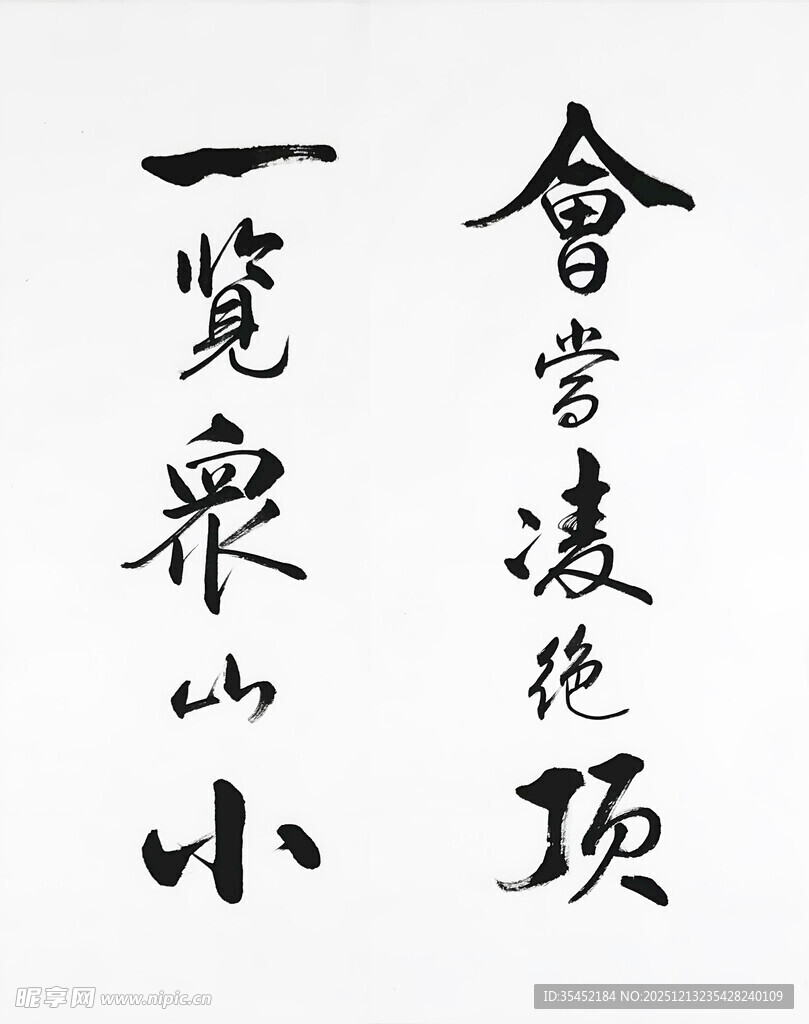 會當凌绝顶
一览衆山小
昵享网 www.nipic.cn
ID:35452184 NO:20251213235428240109